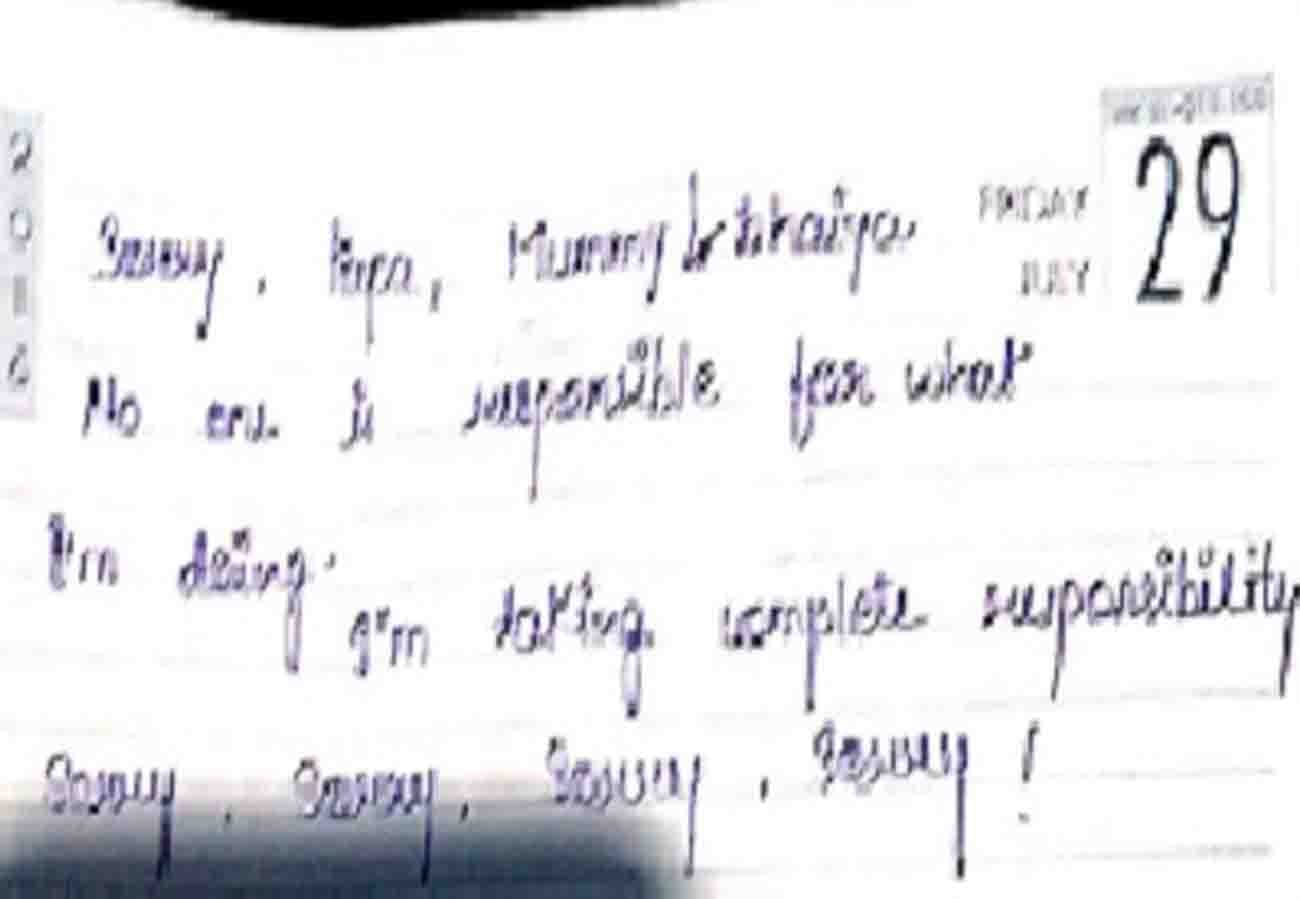 2
0
1
6
29
FRIDAY
JULY
Sorry, Papa, Mummy &
No one is responsible for what
I'm doing.
I'm taking complete responsibility
Sorry, Sorry, Sorry, Sorry!